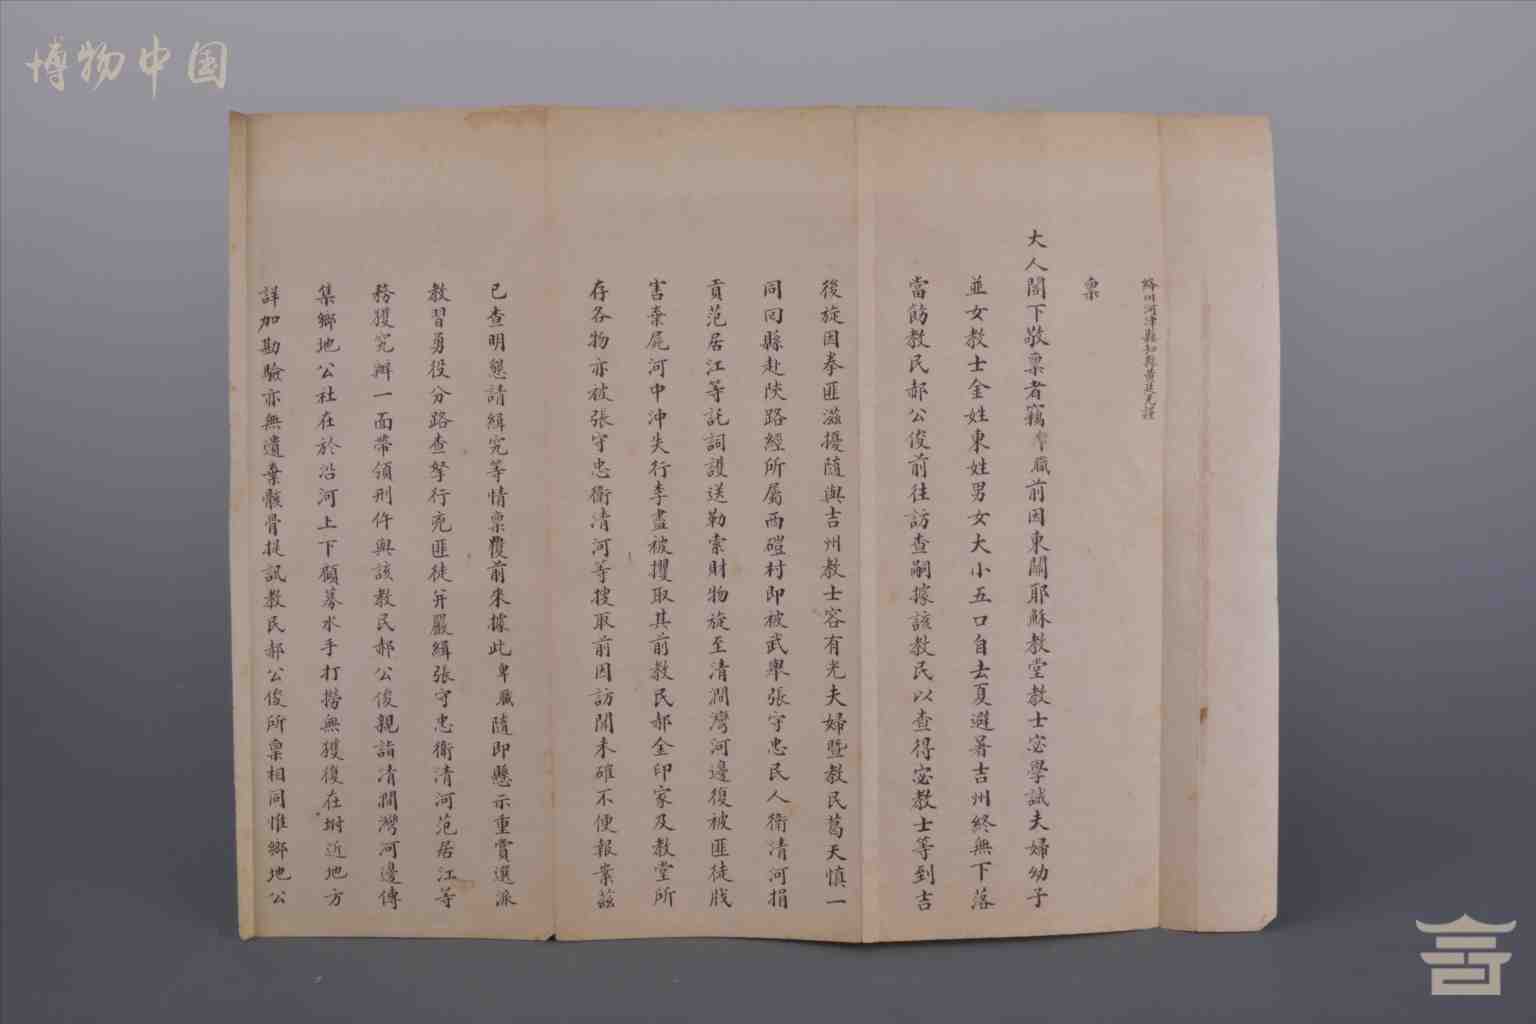 博物中国
絳州河津縣知縣黃廷光謹
稟
大人閣下敬稟者竊卑職前因東關耶穌教堂教士宓學誠夫婦幼子
並女教士金姓東姓男女大小五口自去夏避暑吉州終無下落
當飭教民郝公俊前往訪查嗣據該教民以查得宓教士等到吉
後旋因拳匪滋擾隨與吉州教士容有光夫婦暨教民葛天慎一
同回縣赴陝路經所屬西磑村即被武舉張守忠民人衛清河捐
貢范居江等託詞護送勒索財物旋至清澗灣河邊復被匪徒戕
害棄屍河中沖失行李盡被攫取其前教民郝金印家及教堂所
存各物亦被張守忠衛清河等搜取前因訪聞未確不便報案茲
已查明懇請緝究等情稟覆前來據此卑職隨即懸示重賞選派
教習勇役分路查拏行兇匪徒并嚴緝張守忠衛清河范居江等
務獲究辦一面帶領刑仵與該教民郝公俊親詣清澗灣河邊傳
集鄉地公社在於沿河上下顧募水手打撈無獲復在坿近地方
詳加勘驗亦無遺棄骸骨提訊教民郝公俊所稟相同惟鄉地公